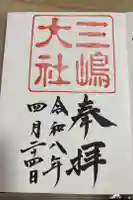 奉拝
三嶋
大社
令和八年
四月二十四日